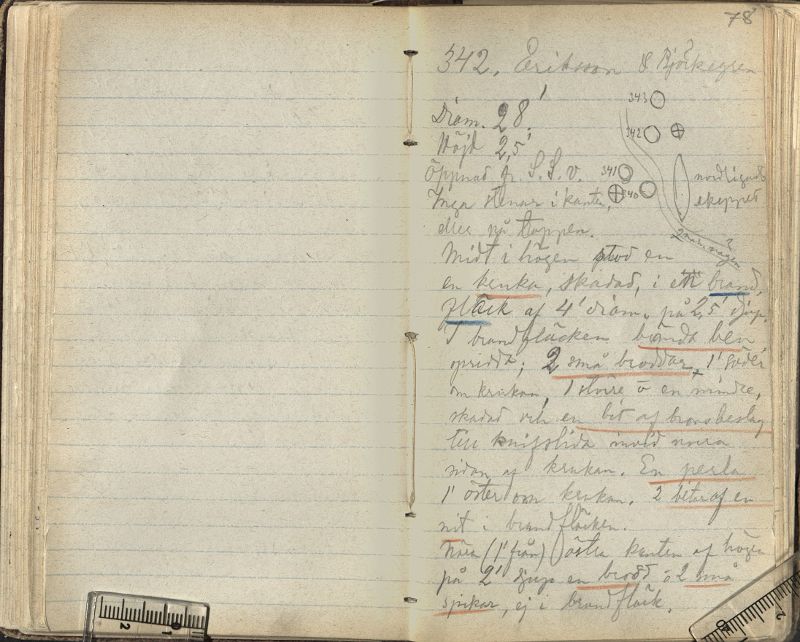 78
342. Eriksson & Björkegren
Diam. 28'
Höjd 2,5'
Öppnad fr. S.S.V.
Inga stenar i kanten,
eller på toppen.
343
342
341
340
nordligaste
skeppet
Midt i högen stod en
en kruka, skadad, i ett brand,
fläck af 4' diam. på 2,5' djup.
I brandfläcken brända ben
spridda; 2 små broddar, 1' söder
om krukan, 1 större o en mindre,
skadad och en bit af bronsbeslag
till knifslida invid norra
sidan af krukan. En perla
1' öster om krukan. 2 bitar af en
nit i brandfläcken.
Nära (1' från) östra kanten af högen
på 2' djup en brodd o 2 små
spikar, ej i brandfläck.